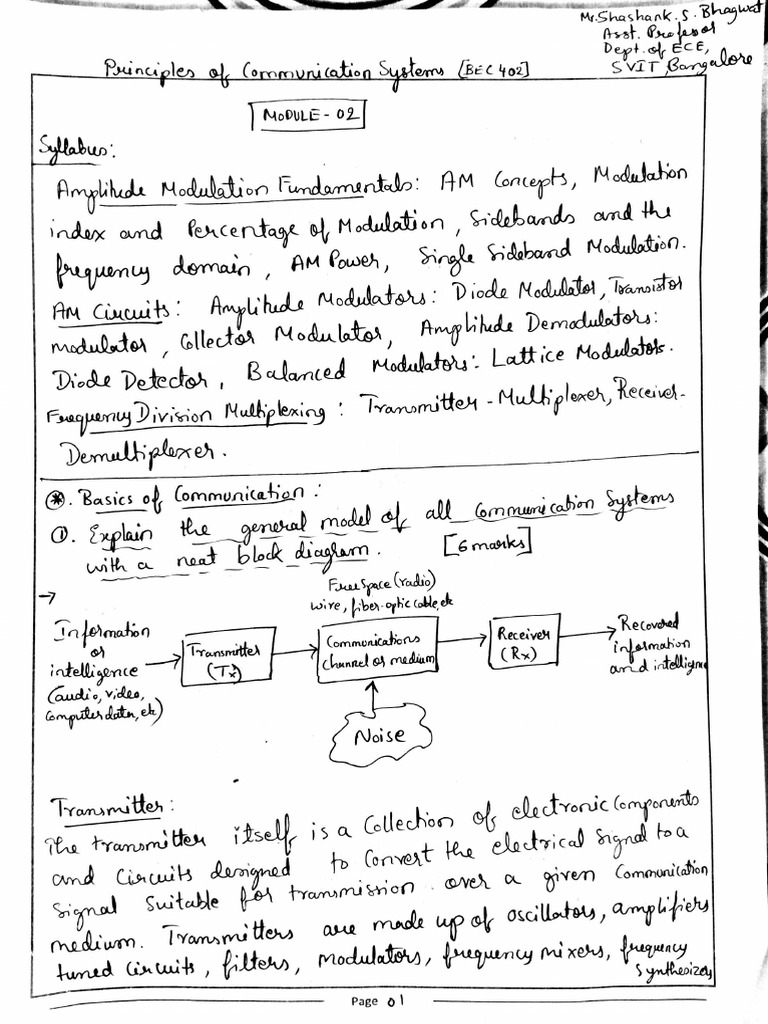 Mr. Shashank. S. Bhagwat
Asst. Professor
Dept. of ECE,
SVIT, Bangalore
Principles of Communication Systems [BEC 402]
MODULE - 02
Syllabus:
Amplitude Modulation Fundamentals: AM Concepts, Modulation
index and Percentage of Modulation, Sidebands and the
frequency domain, AM Power, Single Sideband Modulation.
AM Circuits: Amplitude Modulators: Diode Modulator, Transistor
modulator, Collector Modulator, Amplitude Demodulators:
Diode Detector, Balanced Modulators: Lattice Modulators.
Frequency Division Multiplexing: Transmitter - Multiplexer, Receiver-
Demultiplexer.
⊛. Basics of Communication:
①. Explain the general model of all Communication Systems
with a neat block diagram. [6 marks]
→
Free Space (radio)
wire, fiber-optic cable, etc
Information
or
intelligence
(audio, video,
computer data, etc)
Transmitter
(Tx)
Communications
channel or medium
Receiver
(Rx)
Recovered
information
and intelligence
Noise
Transmitter:
The transmitter itself is a Collection of electronic Components
and Circuits designed to Convert the electrical Signal to a
Signal Suitable for transmission over a given Communication
medium. Transmitters are made up of oscillators, amplifiers
tuned Circuits, filters, modulators, frequency mixers, frequency
Synthesizers
Page 01